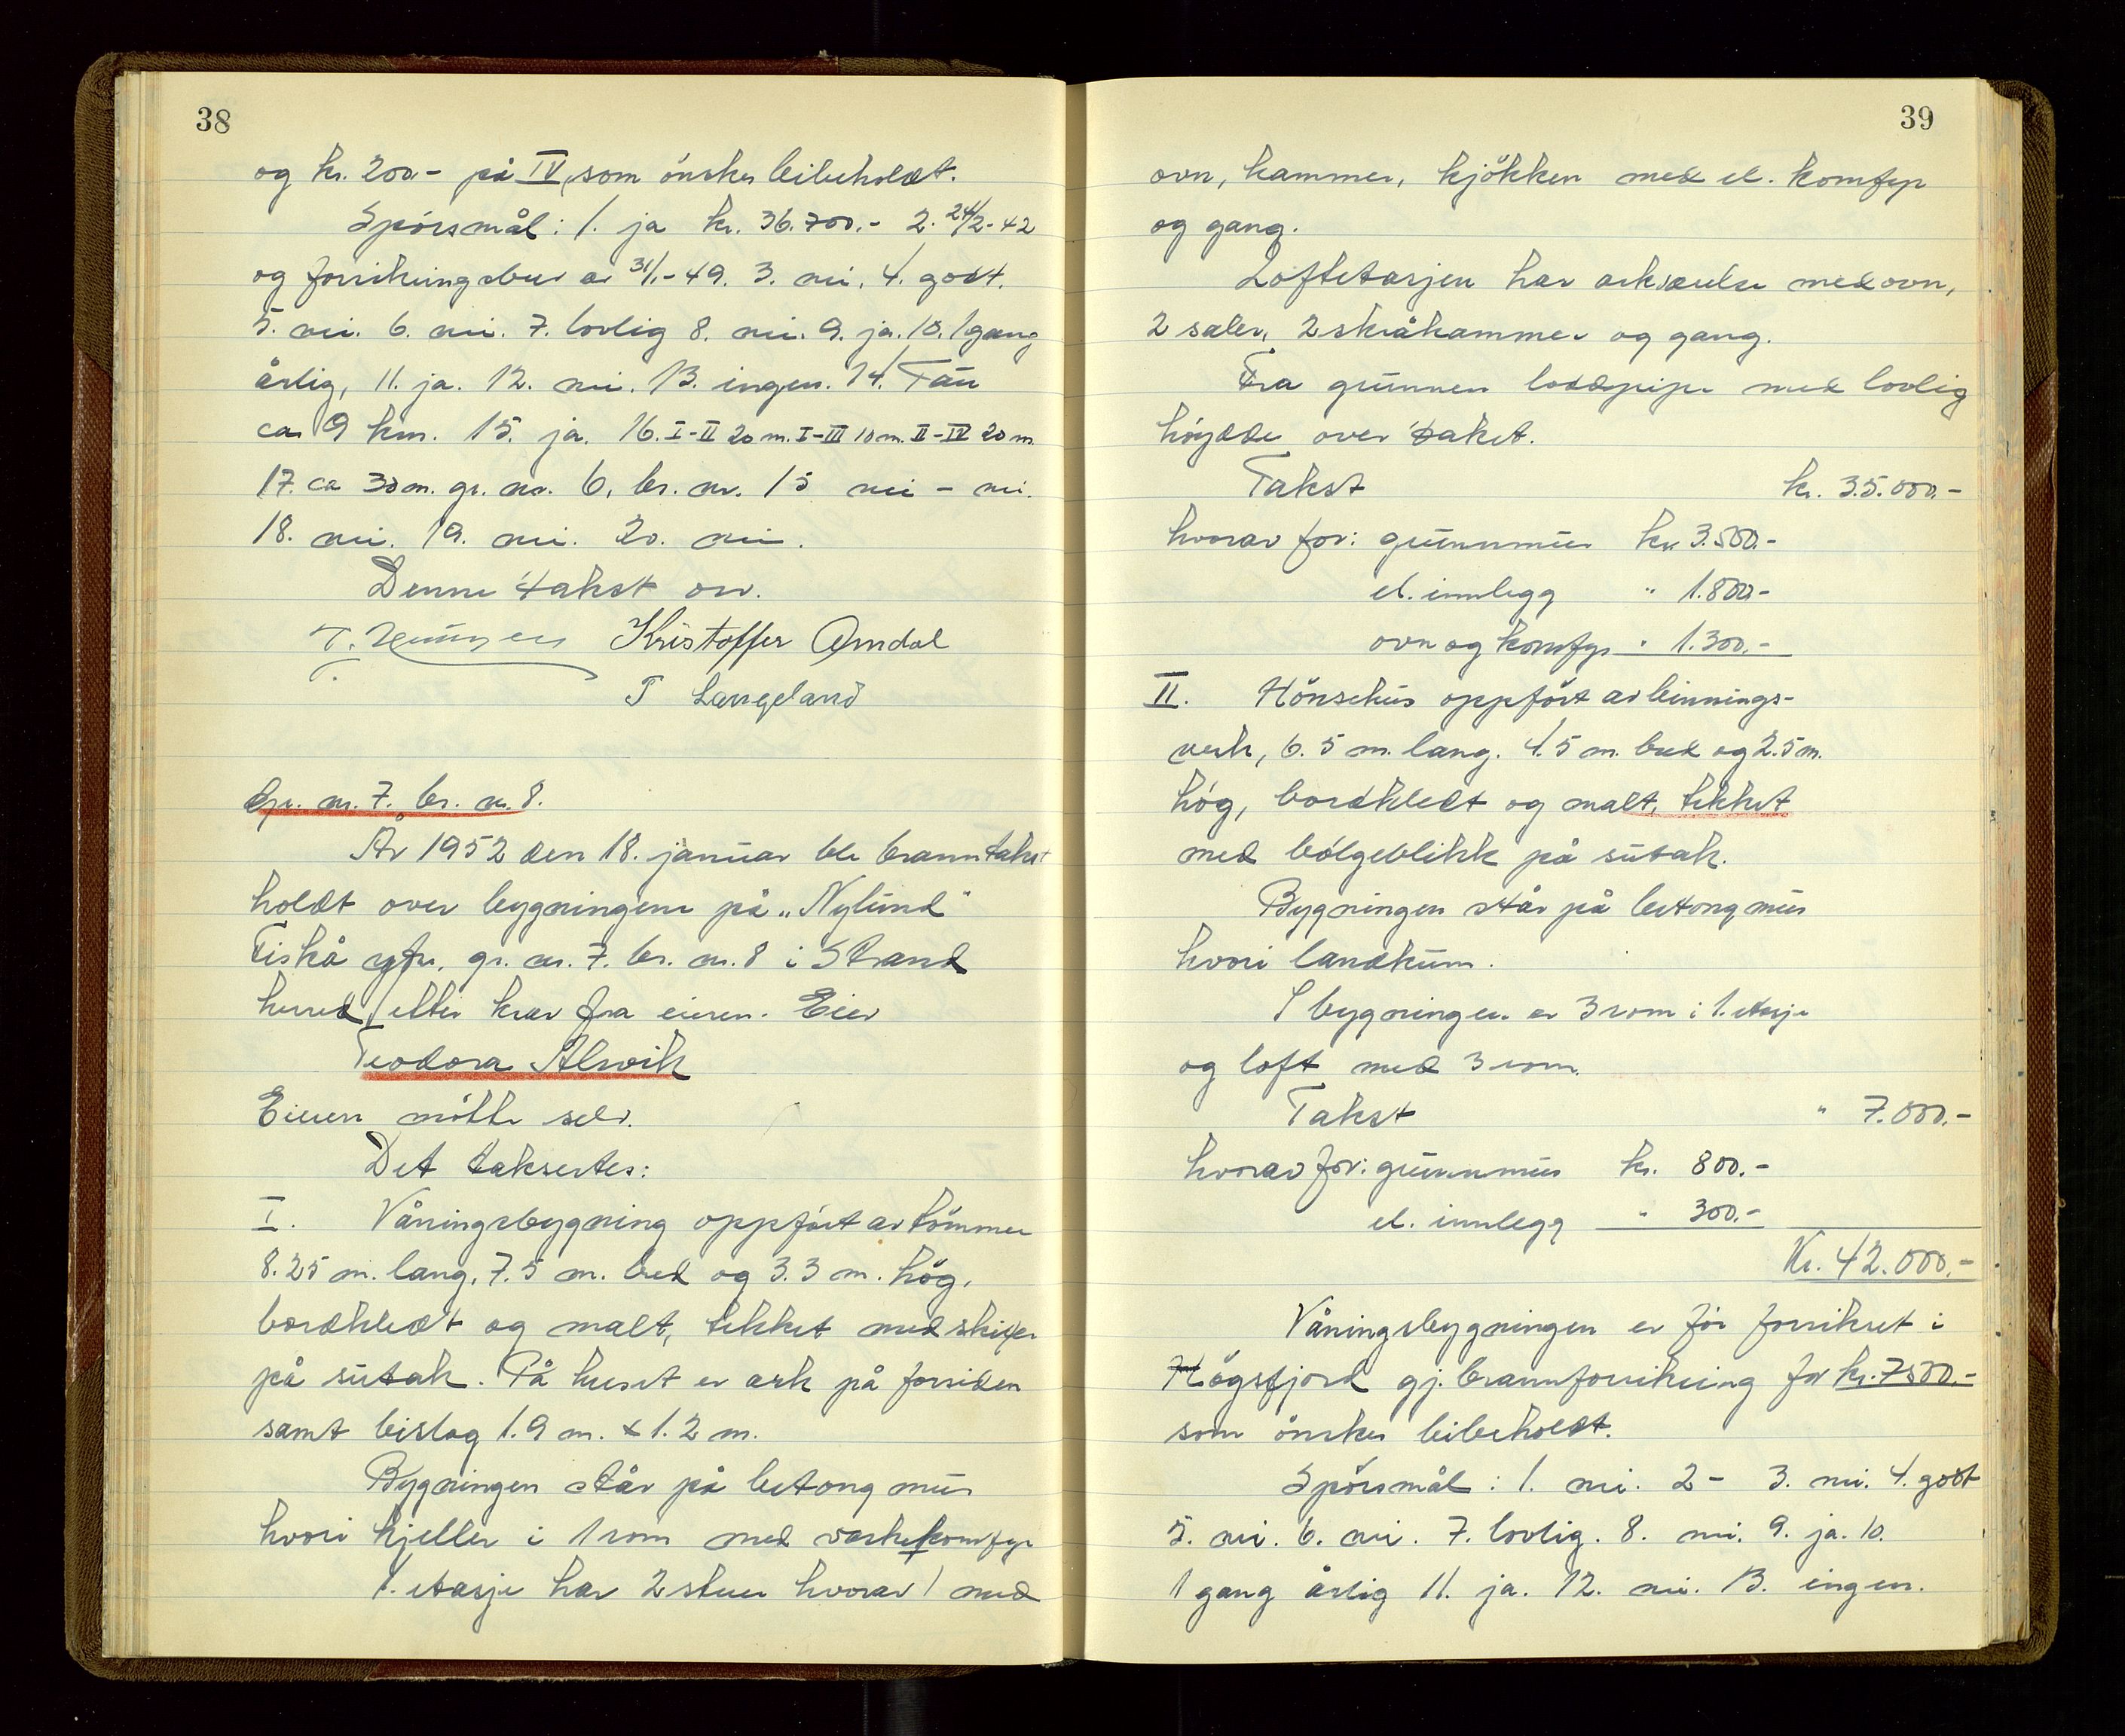 38
og kr. 200.- på IV, som önskes beibeholdt.
Spörsmål: 1. ja kr. 36.700.- 2. 24/2-42
og forsikringsbev av 31/1-49. 3. nei. 4. godt.
5. nei. 6. nei. 7. lovlig 8. nei. 9. ja. 10. 1 gang
årlig, 11. ja. 12. nei. 13. ingen. 14. Tau
ca 9 km. 15. ja. 16. I-II 20 m. I-III 10 m. II-IV 20 m.
17. ca 30 m. gr. nr. 6, br. nr. 15 nei - nei.
18. nei. 19. nei. 20. nei.
Denne takst osv.
Kristoffer Amdal
T Langeland
Gr. nr. 7. br. nr. 8.
År 1952 den 18. januar ble branntakst
holdt over bygningene på "Nylund"
Fiskå gr. nr. 7. br. nr. 8 i Strand
herred, etter krav fra eieren. Eier
Teodora Alsvik
Eieren mötte selv.
Det taksertes:
I. Våningsbygning oppfört av tömmer
8.25 m. lang, 7.5 m. bred og 3.3 m. hög,
bordkledt og malt, tekket med skifer
på sutak. På huset er ark på forsiden
samt bislag 1.9 m. x 1.2 m.
Bygningen står på betongmur
hvori kjeller i 1 rom med vaskekomfyr
1. etasje har 2 stuer hvorav 1 med
39
ovn, kammer, kjökken med el. komfyr
og gang.
Loftetasjen har arkværelse med ovn,
2 saler, 2 skråkammer og gang.
Fra grunnen loddpipe med lovlig
höyde over taket.
Takst kr. 35.000.-
hvorav for: grunnmur kr 3.500.-
el. innlegg " 1.800.-
ovn og komfyr " 1.300.-
II. Hönsehus oppfört av binnings-
verk, 6.5 m. lang. 4.5 m. bred og 2.5 m.
hög, bordkledt og malt, tekket
med bölgeblikk på sutak.
Bygningen står på betongmur
hvori landkum.
I bygningen er 3 rom i 1. etasje
og loft med 3 rom.
Takst " 7.000.-
hvorav for: grunnmur kr. 800.-
el. innlegg " 300.-
Kr. 42.000.-
Våningsbygningen er för forsikret i
Högsfjord gj. brannforsikring for kr. 7500.-
som önskes beibeholdt.
Spörsmål: 1. nei. 2 - 3. nei. 4. godt
5. nei. 6. nei. 7. lovlig. 8. nei. 9. ja. 10.
1 gang årlig 11. ja. 12. nei. 13. ingen.